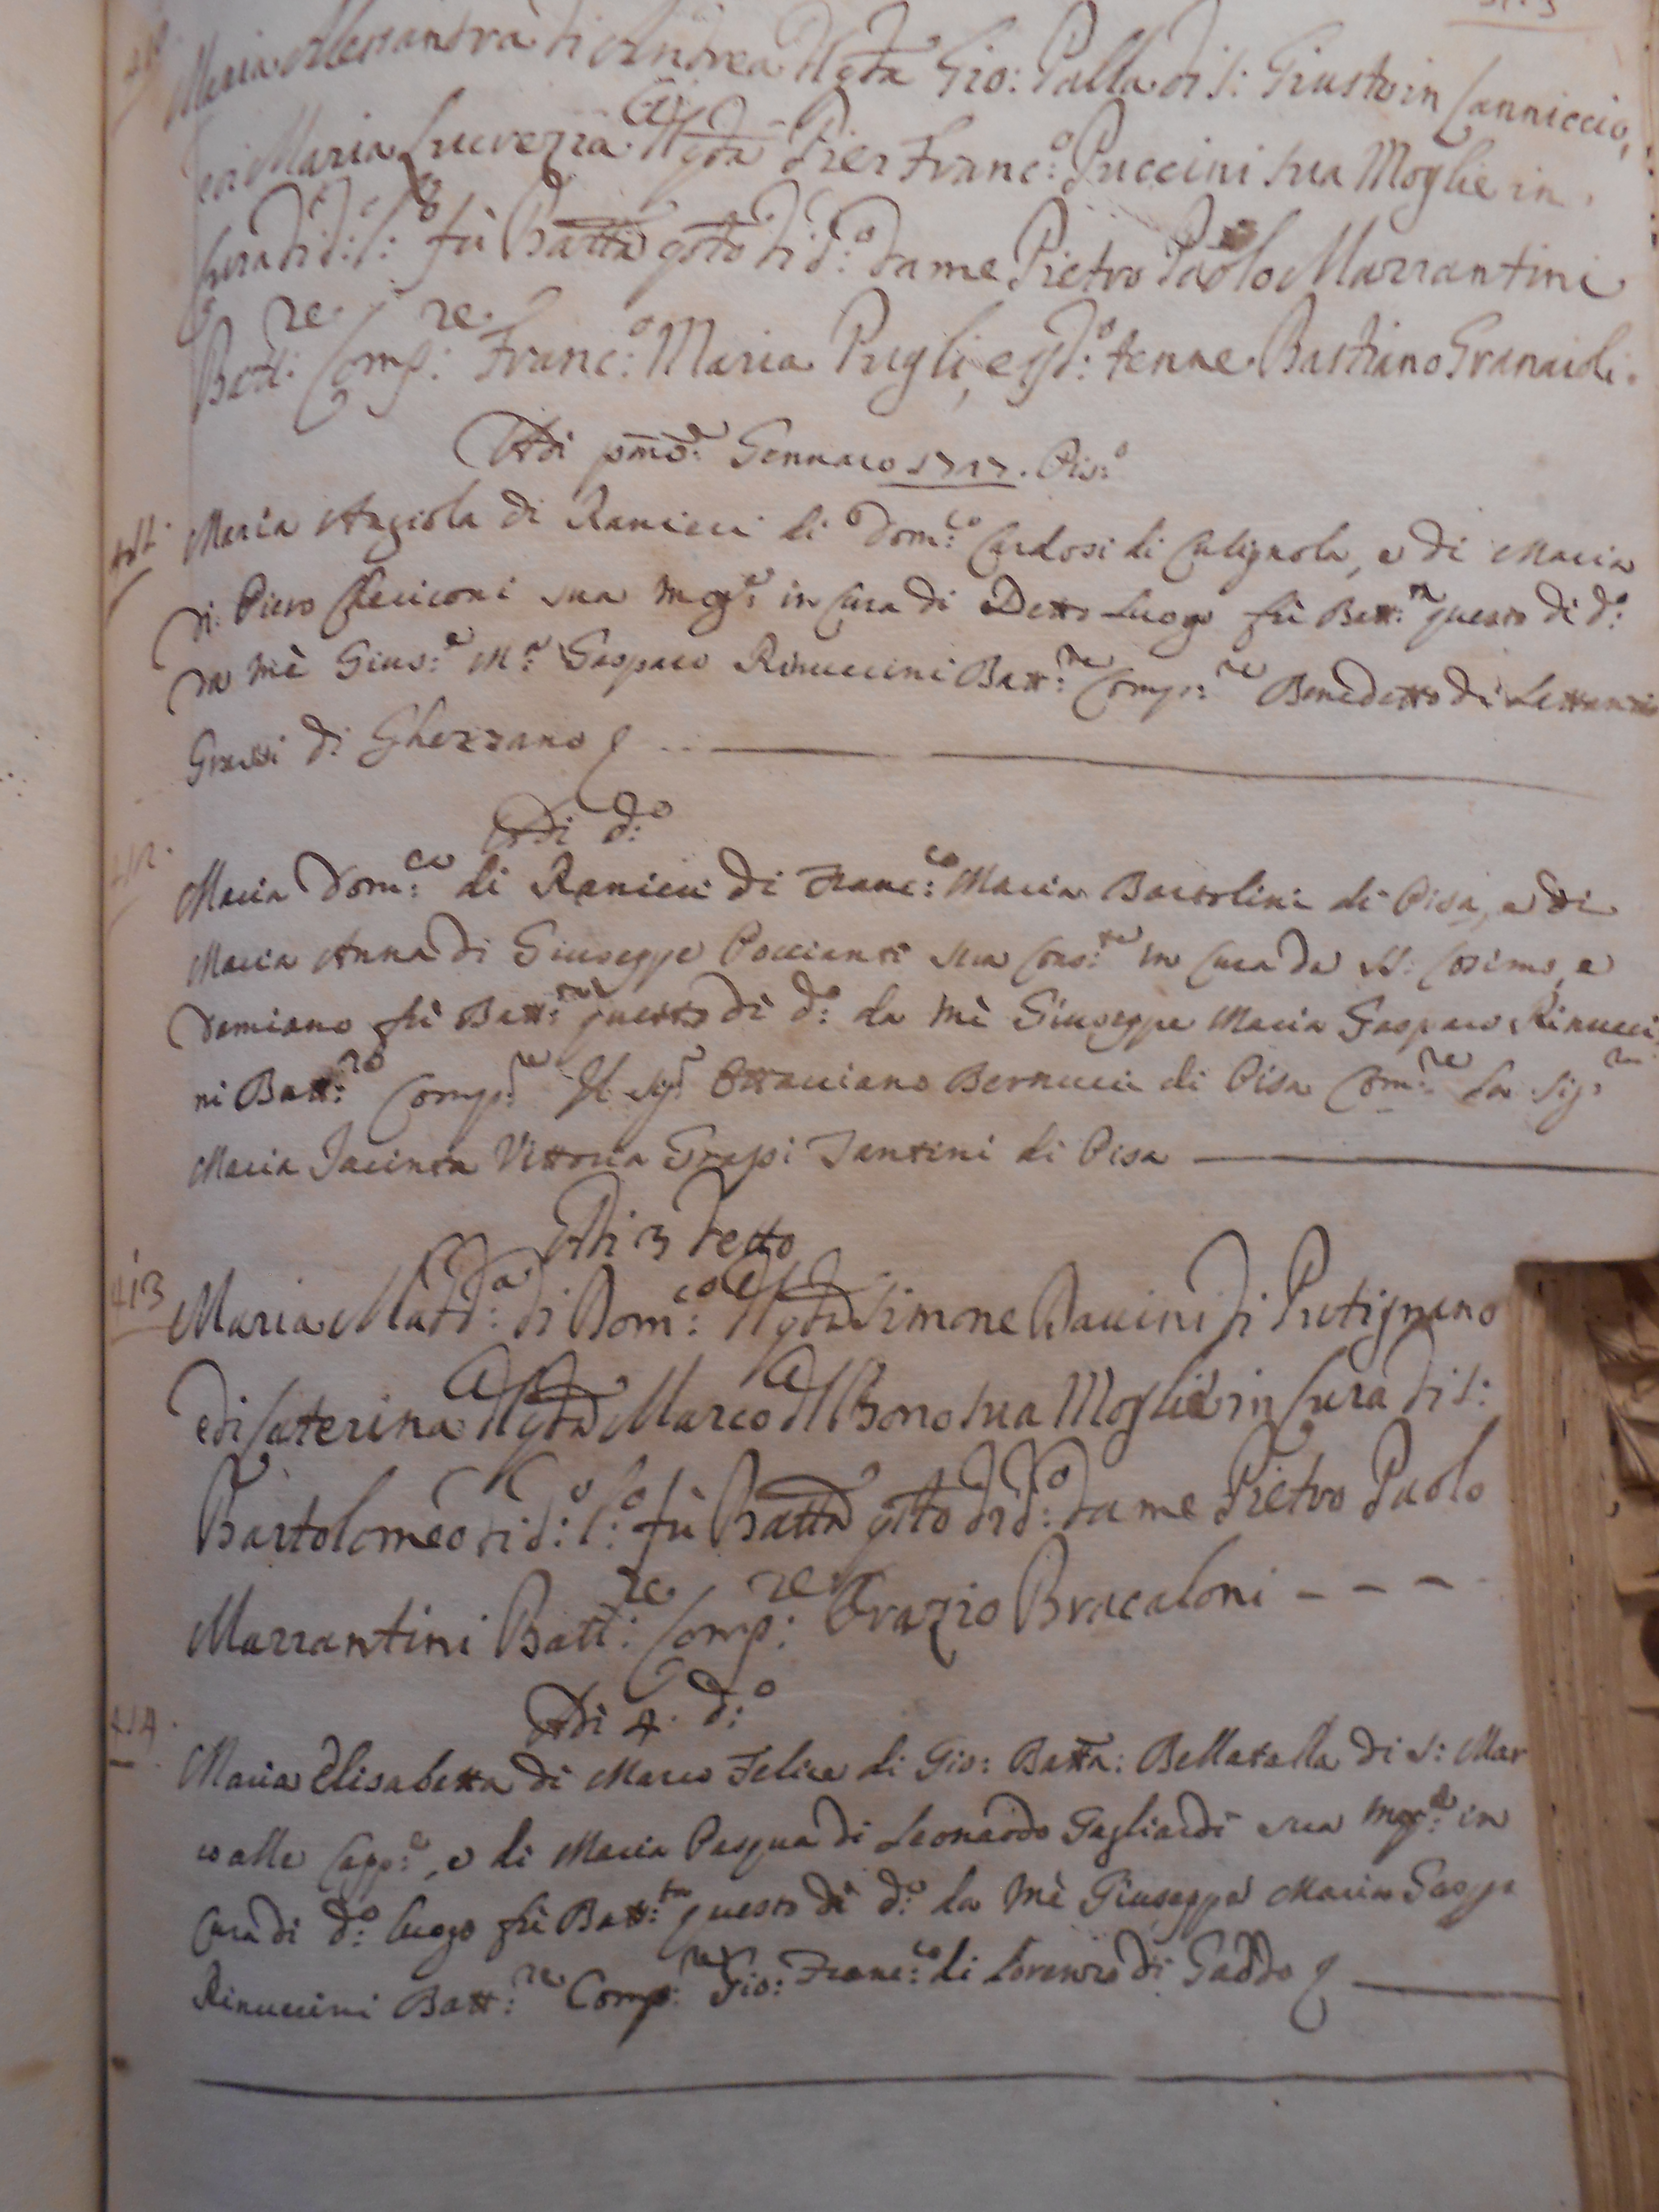 Maria Alessandra di Andrea dl qda Gio: Palla di S: Giusto in Canniccio,
e di Maria Lucrezia dl qda Pier Franc:o Puccini sua Moglie in
Cura di d:o S:o fù Batta qsto dì d:o da me Pietro Paolo Marrantini
Batt:re Comp:re Franc:o Maria Pugli, e p d:o tenne Bastiano Granaioli.
Adi pmo: Gennaro 1717. Pis:o
411. Maria Angiola di Ranieri di Dom:co Cardosi di Calignola, e di Maria
di Piero Checiconi sua Mog:e in Cura di Detto Luogo fù Batt:ta questo dì d:o
da mè Gius:e M:a Gasparo Rinuccini Batt:re Comp:re Benedetto di Lettanzio
Grassi di Ghezzano
Adi d:o
412. Maria Dom:ca di Ranieri di Franc:co Maria Bartolini di Pisa, e di
Maria Anna di Giuseppe Poccianti sua Cons:te in Cura de SS: Cosimo, e
Damiano fù Batt:ta questo dì d:o da mè Giuseppe Maria Gasparo Rinucci
ni Batt:re Comp:re Il Sig:r Ottaviano Bernucci di Pisa Com:re La Sig:ra
Maria Jacinta Vittoria Grassi Fantini di Pisa
Adi 3 Detto
413 Maria Madd:a di Dom:co dl qda Simone Bavini di Putignano
e di Caterina dl qda Marco dl Bono sua Moglie in Cura di S:
Bartolomeo di d:o l:o fù Batta qsto dì d:o da me Pietro Paolo
Marrantini Batt:re Comp:re Orazio Bracaloni - - -
Adi 4. d:o
414. Maria Elisabetta di Marco Felice di Gio: Batta: Bellatalla di S: Mar
co alle Capp:e, e di Maria Pasqua di Leonardo Gagliardi sua Mog:e in
Cura di d:o luogo fù Batt:ta questo dì d:o da mè Giuseppe Maria Gaspp
Rinuccini Batt:re Comp:re Gio: Franc:co di Lorenzo di Gaddo